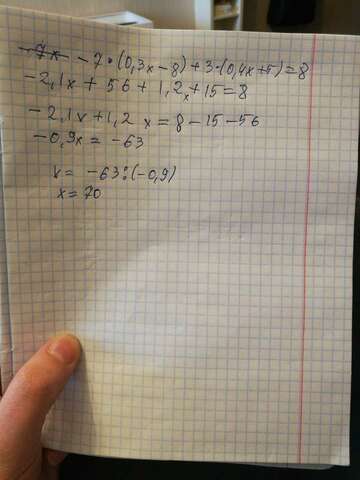 -7x -7·(0,3x-8)+3·(0,4x+5)=8
-2,1x+56+1,2x+15=8
-2,1x+1,2x=8-15-56
-0,9x=-63
x=-63:(-0,9)
x=70